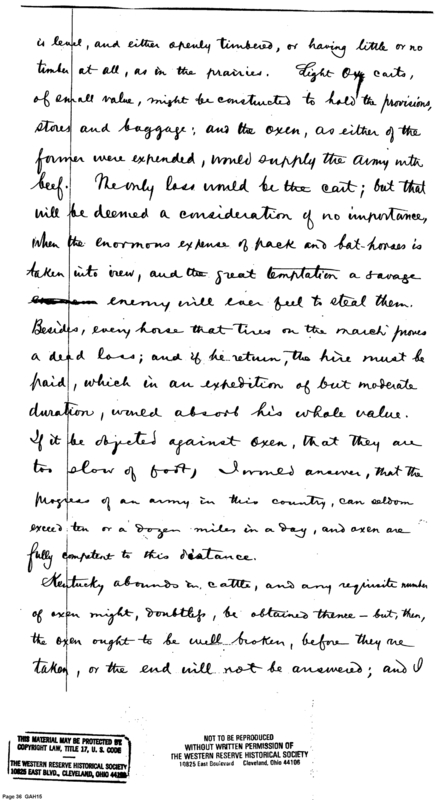 is level, and either openly timbered, or having little or no
timber at all, as in the prairies. Light Ox carts,
of small value, might be constructed to hold the provisions,
stores and baggage; and the oxen, as either of the
former were expended, would supply the Army with
beef. The only loss would be the cart; but that
will be deemed a consideration of no importance,
when the enormous expense of pack and bat-horses is
taken into view, and the great temptation a savage
enemy will ever feel to steal them.
Besides, every horse that tires on the march proves
a dead loss; and if he return, the hire must be
paid, which in an expedition of but moderate
duration, would absorb his whole value.
If it be objected against oxen, that they are
too slow of foot, I would answer, that the
progress of an army in this country, can seldom
exceed ten or a dozen miles in a day, and oxen are
fully competent to this distance.
Kentucky abounds in cattle, and any requisite number
of oxen might, doubtless, be obtained thence – but, then,
the oxen ought to be well broken, before they are
taken, or the end will not be answered; and I
THIS MATERIAL MAY BE PROTECTED BY
COPYRIGHT LAW, TITLE 17, U. S. CODE
THE WESTERN RESERVE HISTORICAL SOCIETY
10825 EAST BLVD., CLEVELAND, OHIO 44106
NOT TO BE REPRODUCED
WITHOUT WRITTEN PERMISSION OF
THE WESTERN RESERVE HISTORICAL SOCIETY
10825 East Boulevard Cleveland, Ohio 44106
Page 36 GAH15